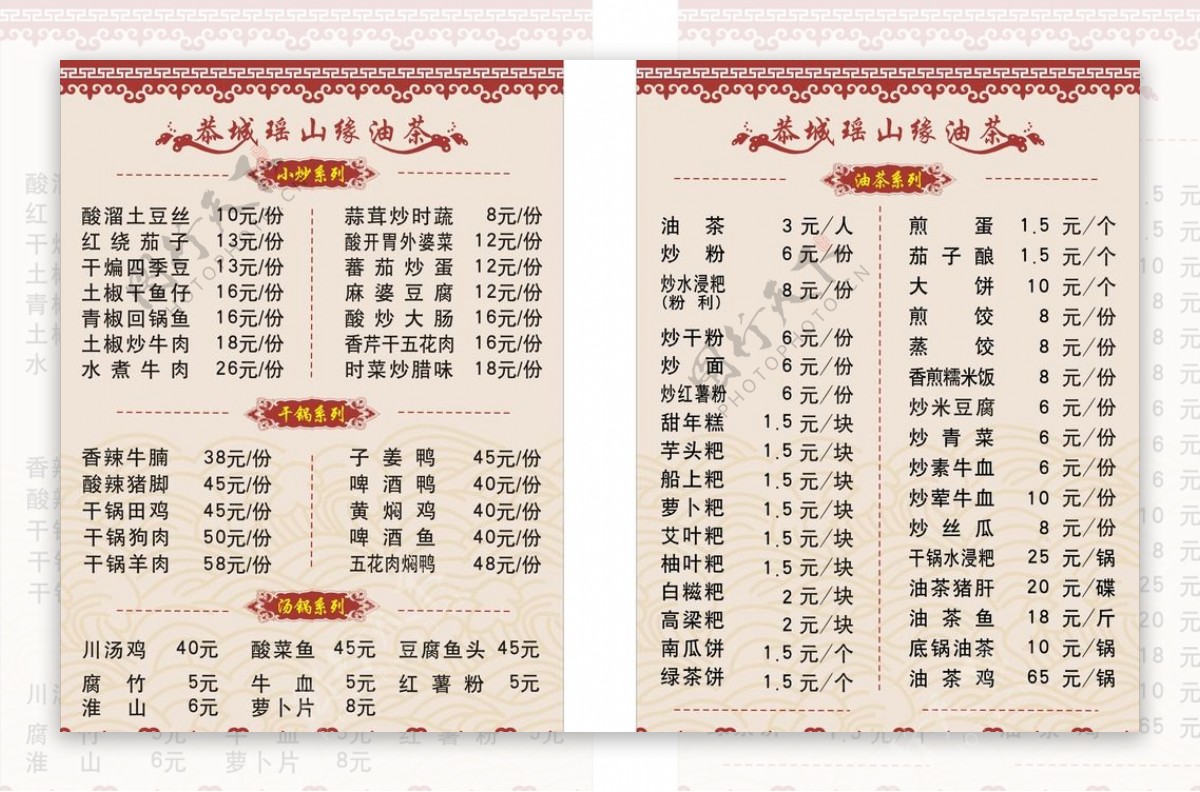 恭城瑶山缘油茶
小炒系列
酸溜土豆丝 10元/份
红绕茄子 13元/份
干煸四季豆 13元/份
土椒干鱼仔 16元/份
青椒回锅鱼 16元/份
土椒炒牛肉 18元/份
水煮牛肉 26元/份
蒜茸炒时蔬 8元/份
酸开胃外婆菜 12元/份
蕃茄炒蛋 12元/份
麻婆豆腐 12元/份
酸炒大肠 16元/份
香芹干五花肉 16元/份
时菜炒腊味 18元/份
干锅系列
香辣牛腩 38元/份
酸辣猪脚 45元/份
干锅田鸡 45元/份
干锅狗肉 50元/份
干锅羊肉 58元/份
子姜鸭 45元/份
啤酒鸭 40元/份
黄焖鸡 40元/份
啤酒鱼 40元/份
五花肉焖鸭 48元/份
汤锅系列
川汤鸡 40元 酸菜鱼 45元 豆腐鱼头 45元
腐竹 5元 牛血 5元 红薯粉 5元
淮山 6元 萝卜片 8元
恭城瑶山缘油茶
油茶系列
油茶 3元/人
炒粉 6元/份
炒水浸粑
(粉利) 8元/份
炒干粉 6元/份
炒面 6元/份
炒红薯粉 6元/份
甜年糕 1.5元/块
芋头粑 1.5元/块
船上粑 1.5元/块
萝卜粑 1.5元/块
艾叶粑 1.5元/块
柚叶粑 1.5元/块
白糍粑 2元/块
高梁粑 2元/块
南瓜饼 1.5元/个
绿茶饼 1.5元/个
煎蛋 1.5元/个
茄子酿 1.5元/个
大饼 10元/个
煎饺 8元/份
蒸饺 8元/份
香煎糯米饭 8元/份
炒米豆腐 6元/份
炒青菜 6元/份
炒素牛血 6元/份
炒荤牛血 10元/份
炒丝瓜 8元/份
干锅水浸粑 25元/锅
油茶猪肝 20元/碟
油茶鱼 18元/斤
底锅油茶 10元/锅
油茶鸡 65元/锅